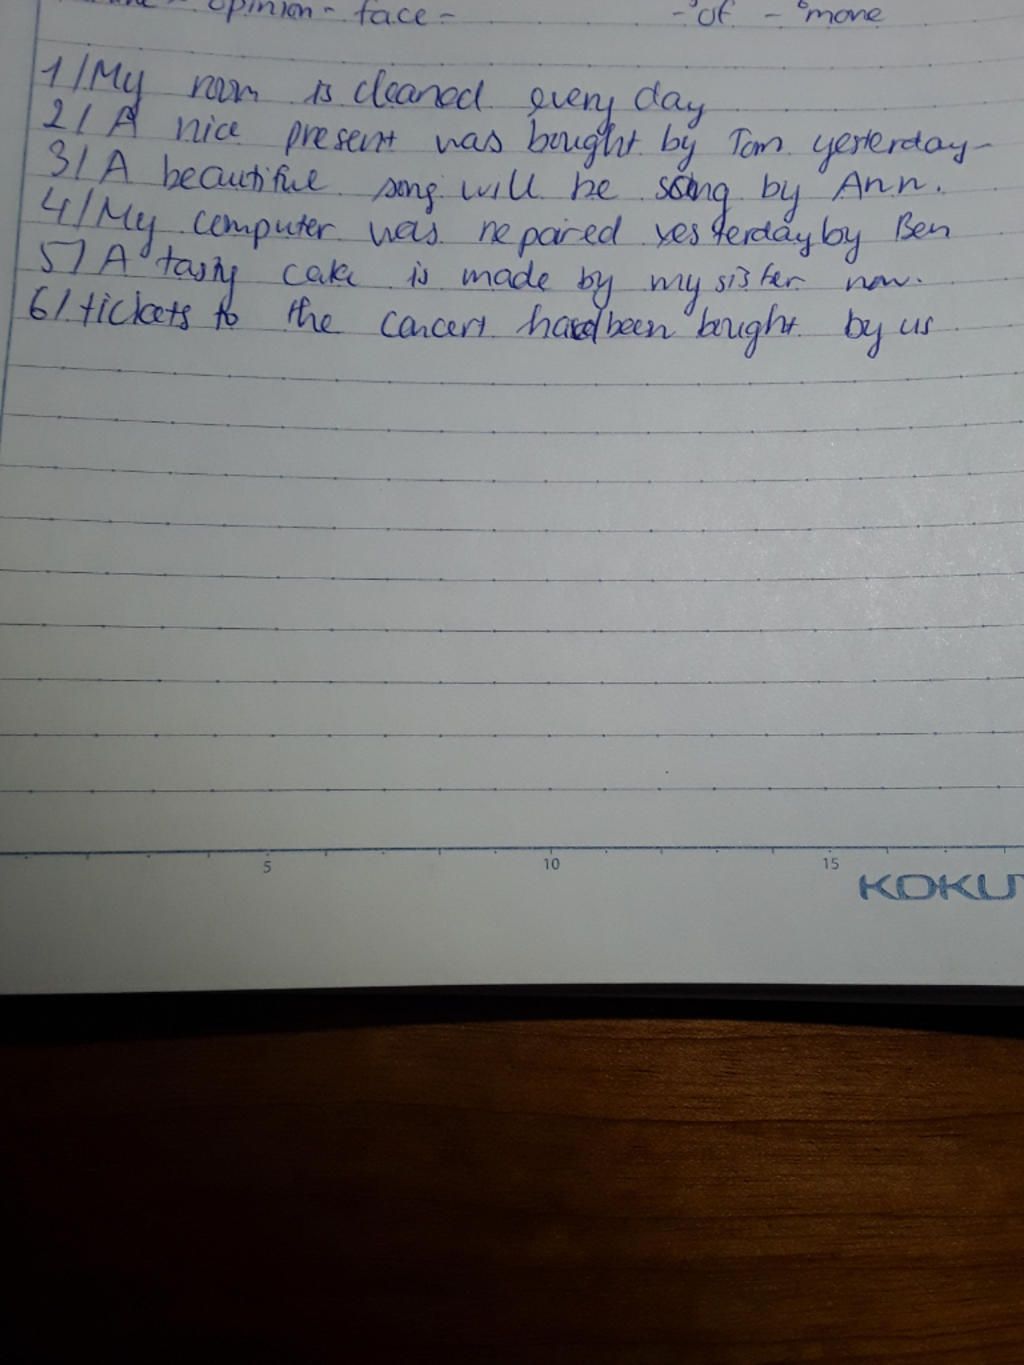 opinion - face - - of - move
1/ My room is cleaned every day
2/ A nice present was bought by Tom yesterday-
3/ A beautiful song will be song by Ann.
4/ My computer was repaired yesterday by Ben
5/ A tasty cake is made by my sister now.
6/ tickets to the concert have been bought by us
5 10 15
KOKU